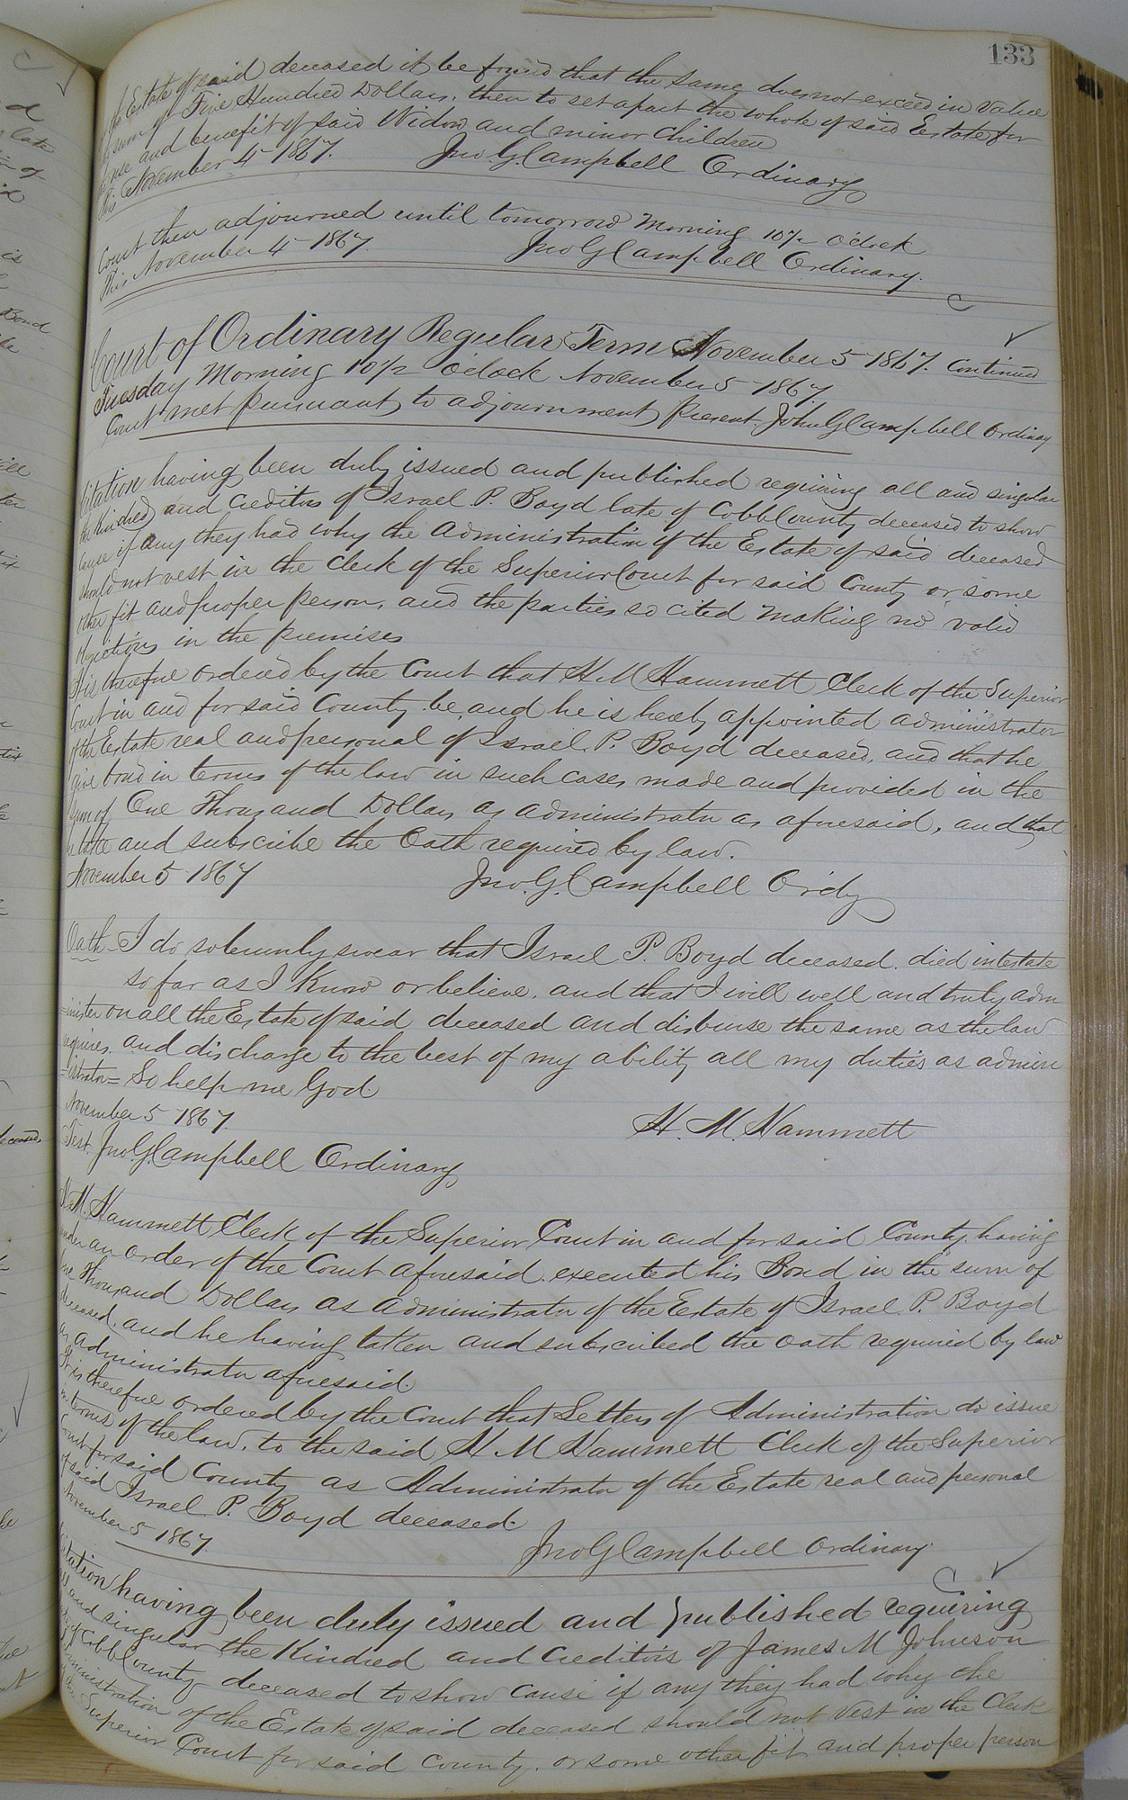 133
the Estate of said deceased it be found that the same does not exceed in value
sum of Five Hundred Dollars, then to set apart the whole of said Estate for
use and benefit of said Widow and minor Children
this November 4th 1867. Jno. G. Campbell Ordinary
Court then adjourned until tomorrow Morning 10½ Oclock
This November 4th 1867 Jno G Campbell Ordinary.
Court of Ordinary Regular Term November 5 1867. Continued
Tuesday Morning 10½ Oclock November 5 1867.
Court met pursuant to adjournment, Present, John G Campbell Ordinary
Citation having been duly issued and published requiring all and singular
the kindred and creditors of Israel P. Boyd late of Cobb County deceased to show
cause if any they had why the Administration of the Estate of said deceased
should not vest in the Clerk of the Superior Court for said County or some
other fit and proper person, and the parties so cited making no valid
objections in the premises
It is therefore ordered by the Court that H M Hammett Clerk of the Superior
Court in and for said County be, and he is hereby appointed administrator
of the Estate real and personal of Israel. P. Boyd deceased, and that he
give bond in terms of the law in such cases made and provided in the
sum of One Thousand Dollars as administrator as aforesaid, and that
he take and subscribe the Oath required by law.
November 5 1867 Jno. G. Campbell Ordy
Oath I do solemnly swear that Israel P. Boyd deceased. died intestate
so far as I Know or believe, and that I will well and truly adm
=inister on all the Estate of said deceased and disburse the same as the law
requires, and discharge to the best of my ability all my duties as admin
=istrator= So help me God
November 5 1867. H. M. Hammett
Test Jno. G. Campbell Ordinary
H. M. Hammett Clerk of the Superior Court in and for said County having
under an order of the Court aforesaid. executed his Bond in the sum of
One Thousand Dollars as Administrator of the Estate of Israel P. Boyd
deceased, and he having taken and subscribed the oath required by law
as administrator aforesaid.
It is therefore ordered by the Court that Letters of Administration do issue
in terms of the law, to the said H M Hammett Clerk of the Superior
Court for said County as Administrator of the Estate real and personal
of said Israel P. Boyd deceased
November 5 1867 Jno G Campbell Ordinary
Citation having been duly issued and published requiring
all and singular the Kindred and Creditors of James M Johnson
of Cobb County deceased to show cause if any they had why the
administration of the Estate of said deceased should not vest in the Clerk
Superior Court for said County, or some other fit and proper person